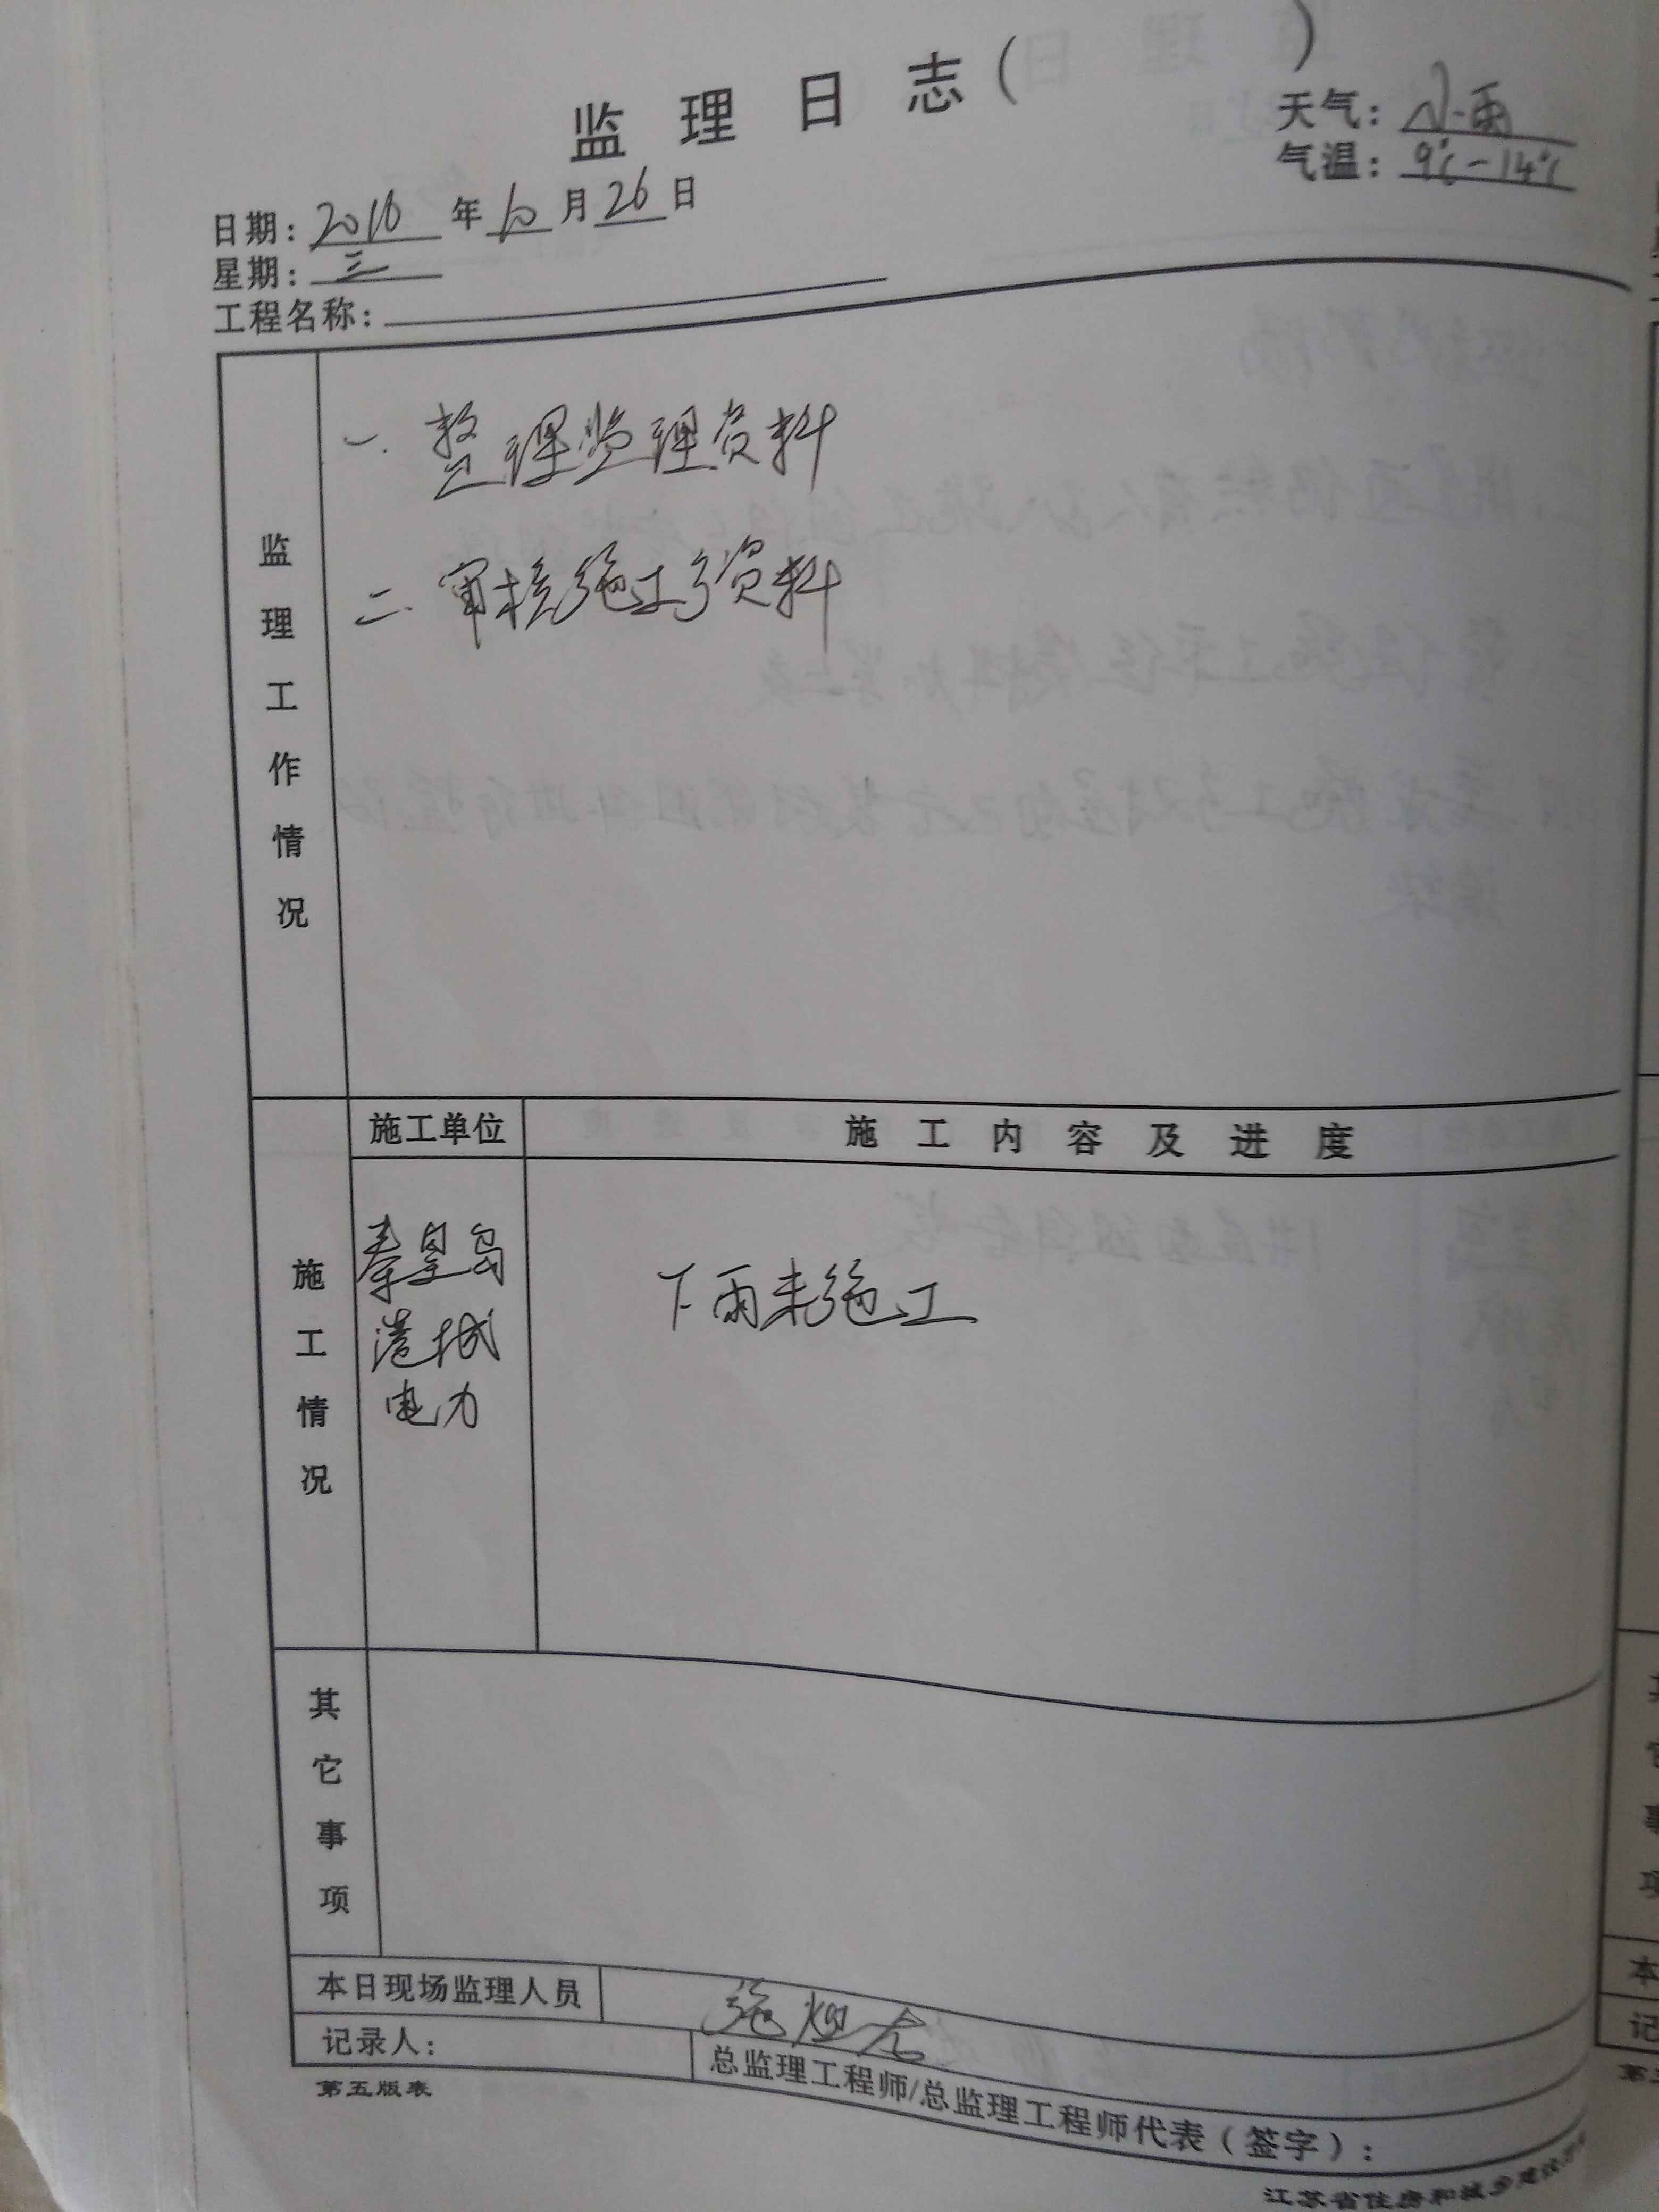 监理日志(    )
天气：小雨
气温：9℃-14℃
日期：2016年10月26日
星期：三
工程名称：
监理工作情况
一. 整理监理资料
二. 审核施工资料
施工单位 施工内容及进度
施工情况
秦皇岛
港城
电力
下雨未施工
其它事项
本日现场监理人员
记录人：
总监理工程师/总监理工程师代表（签字）：
第五版表
江苏省住房和城乡建设